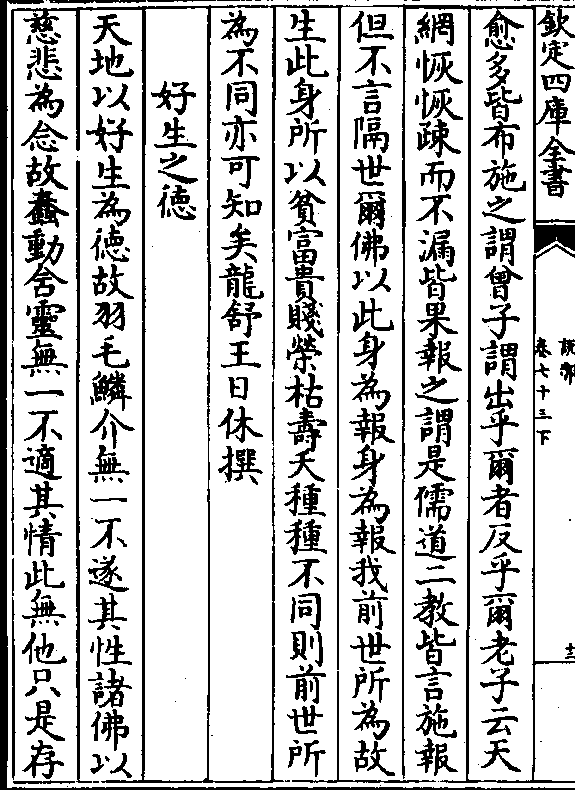 欽定四庫全書
說郛
卷七十三下
十二
愈多皆布施之謂曾子謂出乎爾者反乎爾老子云天
網恢恢疎而不漏皆果報之謂是儒道二教皆言施報
但不言隔世爾佛以此身為報身為報我前世所為故
生此身所以貧富貴賤榮枯壽夭種種不同則前世所
為不同亦可知矣龍舒王日休撰
好生之德
天地以好生為德故羽毛鱗介無一不遂其性諸佛以
慈悲為念故蠢動含靈無一不適其情此無他只是存